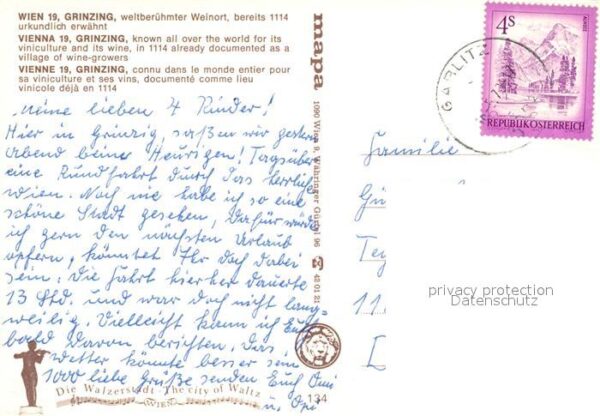 WIEN 19, GRINZING, weltberühmter Weinort, bereits 1114
urkundlich erwähnt
VIENNA 19, GRINZING, known all over the world for its
viniculture and its wine, in 1114 already documented as a
village of wine-growers
VIENNE 19, GRINZING, connu dans le monde entier pour
sa viniculture et ses vins, documenté comme lieu
vinicole déjà en 1114
Meine lieben 4 Kinder!
Hier in Grinzig, saßen wir gestern
Abend beim Heurigen! Tagsüber
eine Rundfahrt durch das herrliche
Wien. Noch nie habe ich so eine
schöne Stadt gesehen, dafür würde
ich gern den nächsten Urlaub
opfern, könntet Ihr doch dabei
sein. Die Fahrt hierher dauerte
13 Std. und war doch nicht lang-
weilig. Vielleicht kann ich Euch
bald davon berichten. Das
Wetter könnte besser sein
1000 liebe Grüße senden Euch Omi
u. Opi
Die Walzerstadt - The city of Waltz
WIEN
134
mapa
1090 Wien 9, Währinger Gürtel 96
42 01 21
4S
REPUBLIK ÖSTERREICH
GABLITZ
Familie
Gü
Te
11
privacy protection
Datenschutz